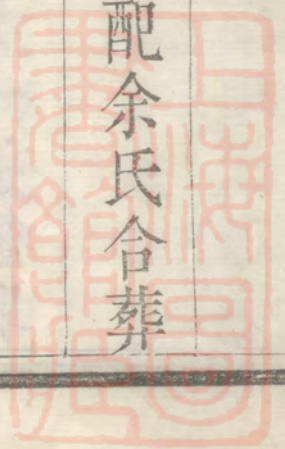 配余氏合葬